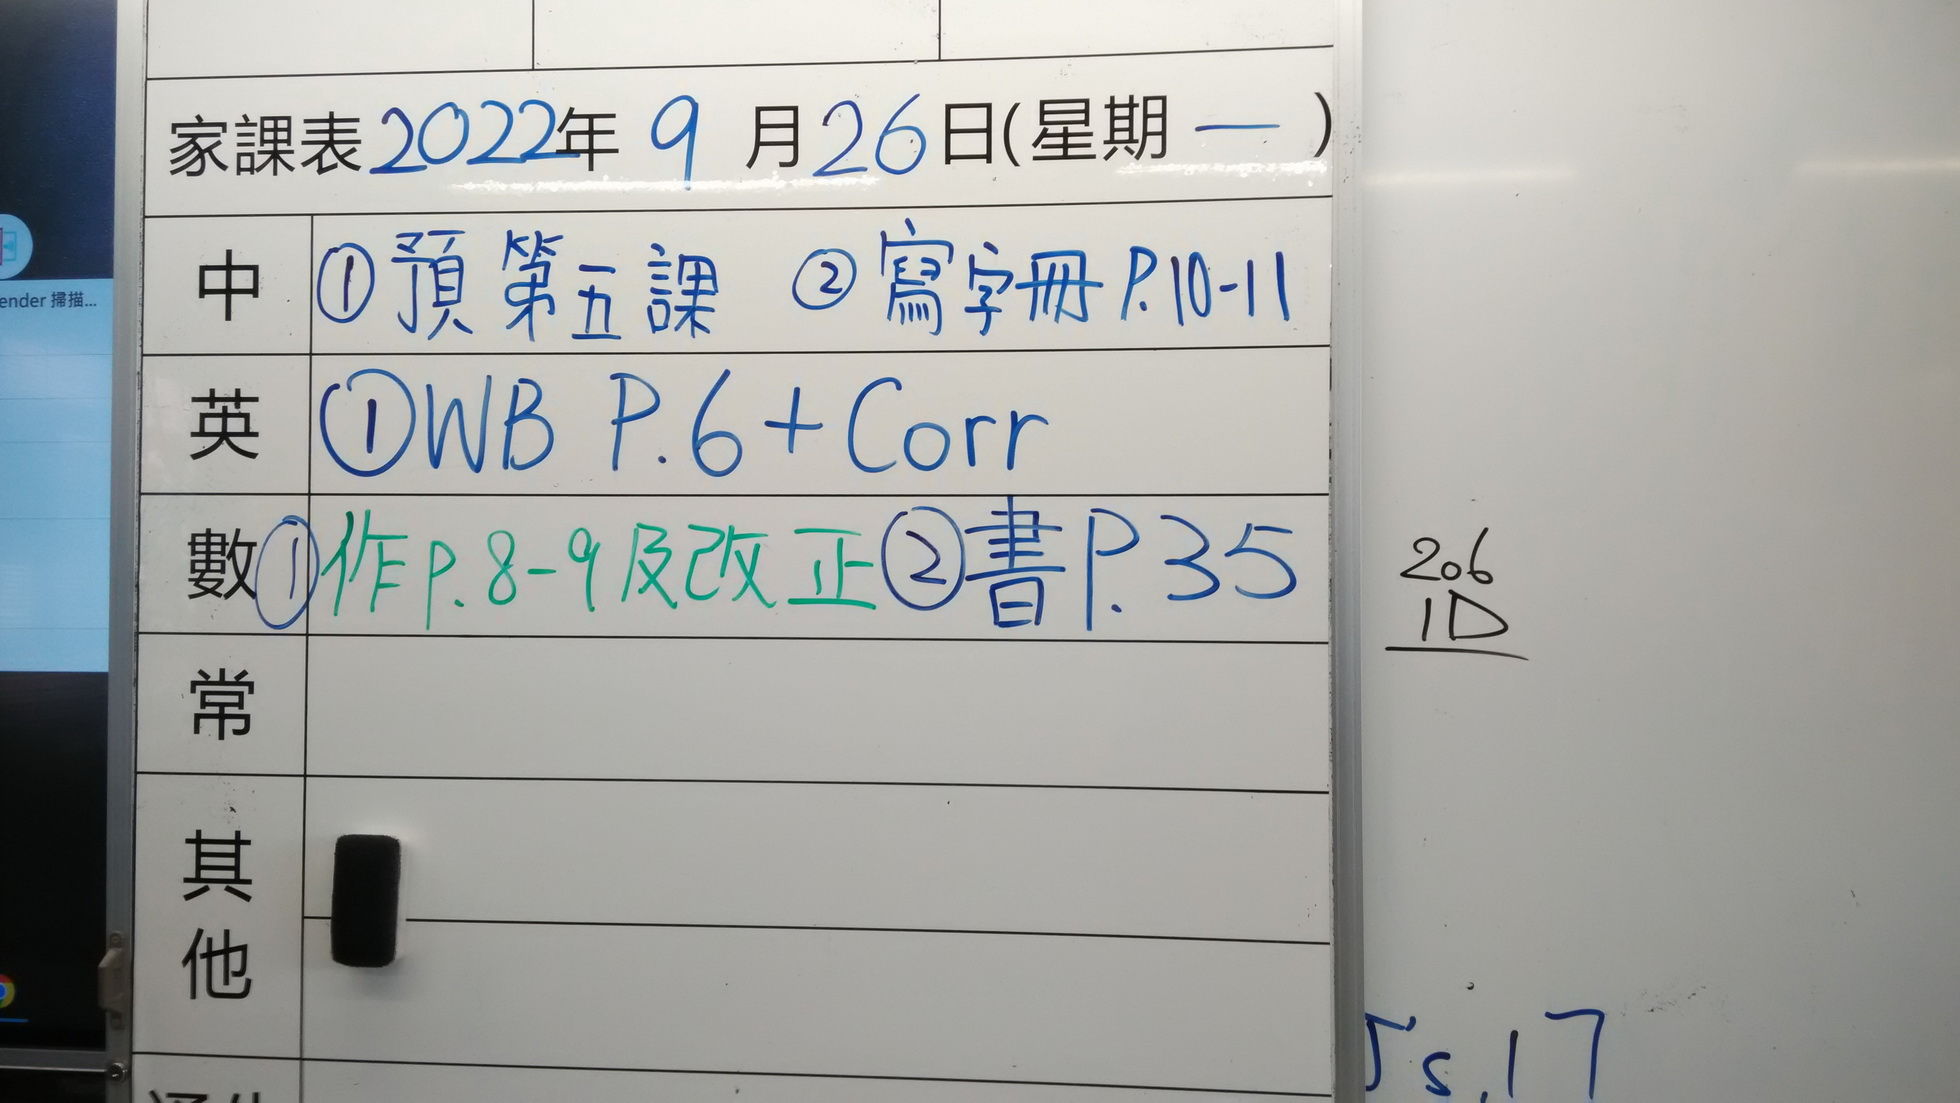 家課表2022年 9 月26日(星期 一 )
中 ①預 第五課 ②寫字冊P.10-11
英 ①WB P.6+Corr
數 ①作P.8-9及改正②書P.35
常
其他
ender 掃描...
206
1D
s.17